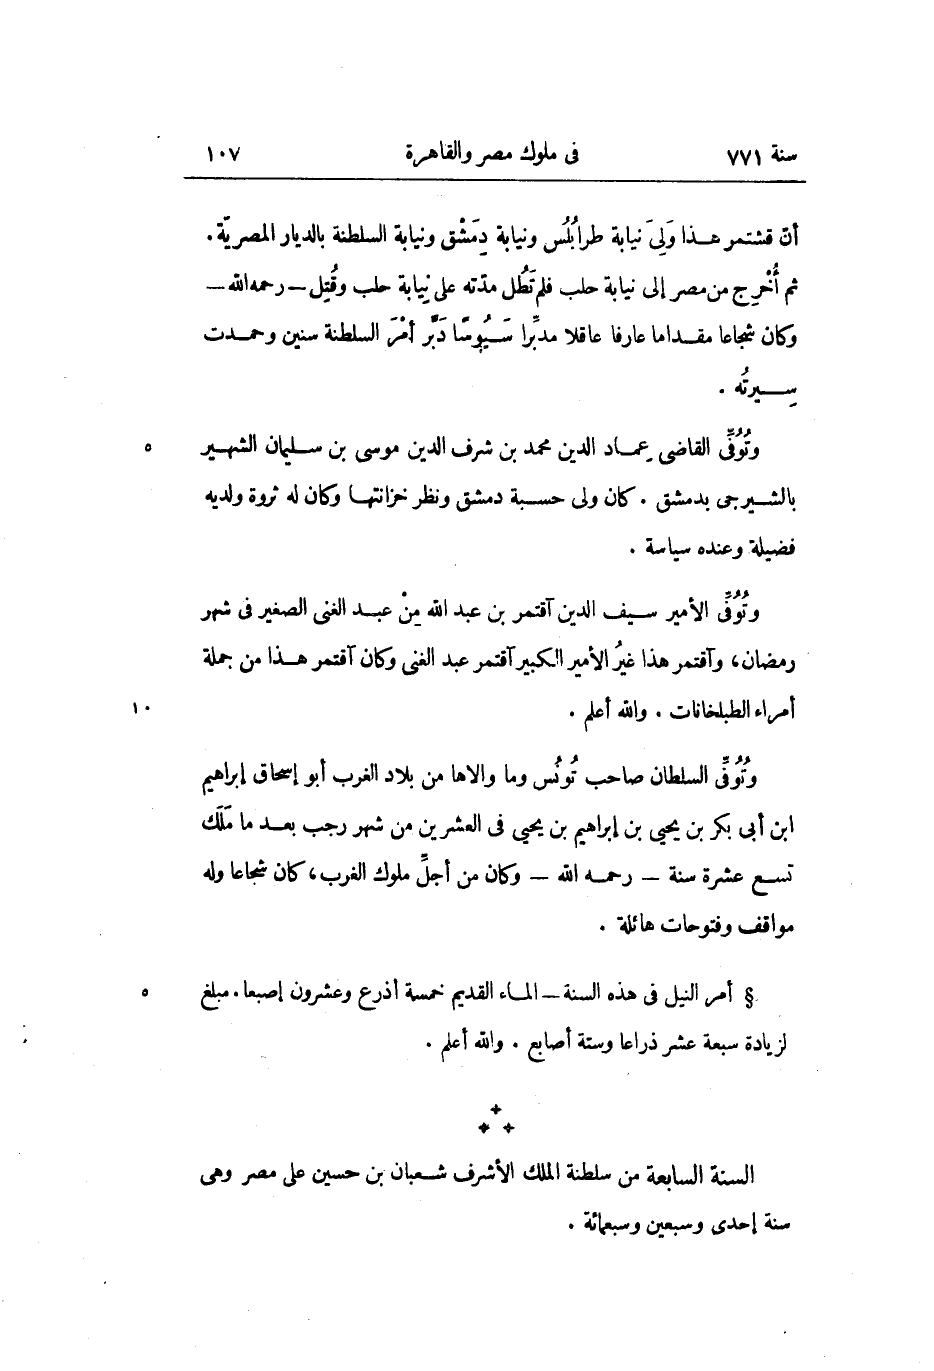 سنة ٧٧١ فى ملوك مصر والقاهرة ١٠٧
أنّ قشتمر هـذا وَلِىَ نيابة طرابُلُس ونيابة دِمَشْق ونيابة السلطنة بالديار المصريّة .
ثم أُخْرِج من مصر إلى نيابة حلب فلم تَطُل مدّته على نيابة حلب وقُتِل — رحمه الله —
وكان شجاعا مقـداما عارفا عاقلا مدبِّرا سَـيُوسًا دَبَّر أمْرَ السلطنة سنين وحمـدت
سِـيرتُه .
وتُوُفِّى القاضى عمـاد الدين محمد بن شرف الدين موسى بن سـليمان الشهـير ٥
بالشـيرجى بدمشق . كان ولى حسـبة دمشق ونظر خزانتهـا وكان له ثروة ولديه
فضيلة وعنده سياسة .
وتُوُفِّى الأمير سـيف الدين آقتمر بن عبد الله مِنْ عبـد الغنى الصغير فى شهر
رمضان، وآقتمر هذا غيرُ الأمير الكبير آقتمر عبد الغنى وكان آقتمر هـذا من جملة
أمراء الطبلخانات . والله أعلم . ١٠
وتُوُفِّى السلطان صاحب تُونُس وما والاها من بلاد الغرب أبو إسحاق إبراهيم
ابن أبى بكر بن يحيى بن إبراهيم بن يحيى فى العشرين من شهر رجب بعـد ما مَلَك
تسـع عشرة سنة — رحمـه الله — وكان من أجلِّ ملوك الغرب، كان شجاعا وله
مواقف وفتوحات هائلة .
§ أمر النيل فى هذه السنة — المـاء القديم خمسة أذرع وعشرون إصبعا . مبلغ ٥
لزيادة سبعة عشر ذراعا وستة أصابع . والله أعلم .
✦
✦ ✦
السنة السابعة من سلطنة الملك الأشرف شـعبان بن حسين على مصر وهى
سنة إحدى وسبعين وسبعمائة .